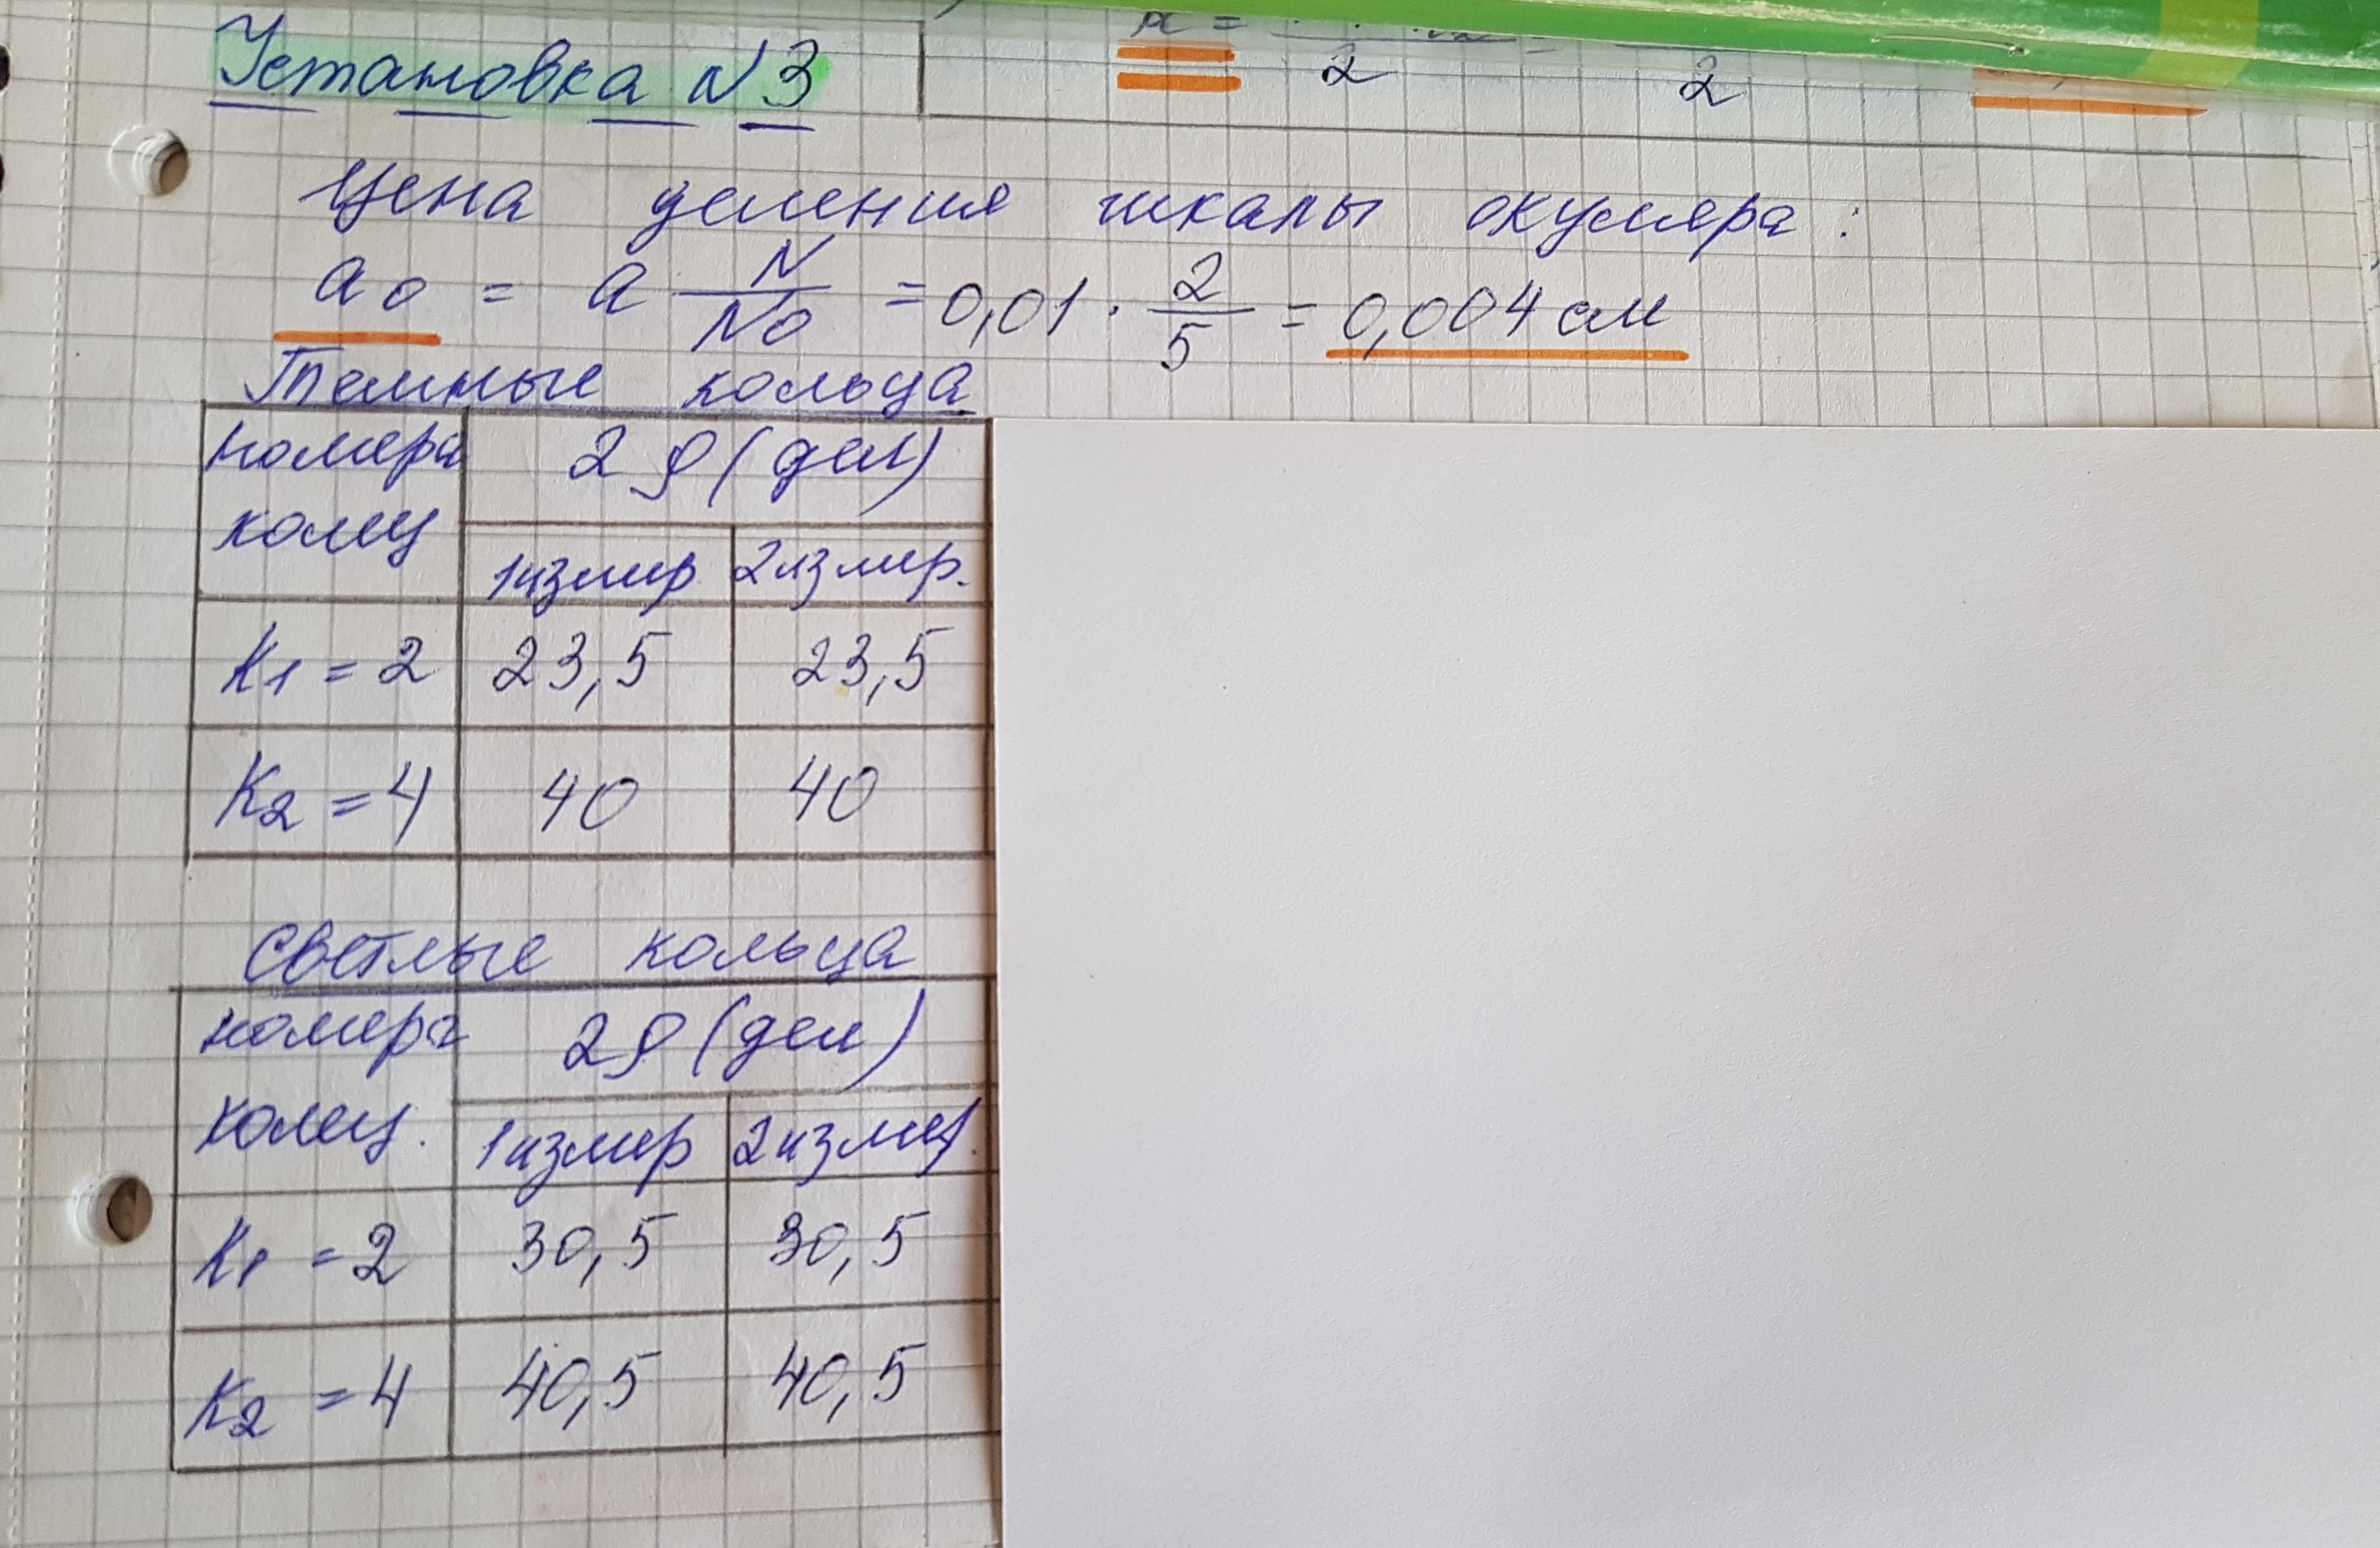 Установка N3
2 2
Цена деления шкалы окуляра:
a₀ = a N/N₀ = 0,01 · 2/5 = 0,004 см
Темные кольца
номера колец 2ρ (дел)
1измер 2измер.
K₁ = 2 23,5 23,5
K₂ = 4 40 40
Светлые кольца
номера колец. 2ρ (дел)
1измер 2измер.
K₁ = 2 30,5 30,5
K₂ = 4 40,5 40,5